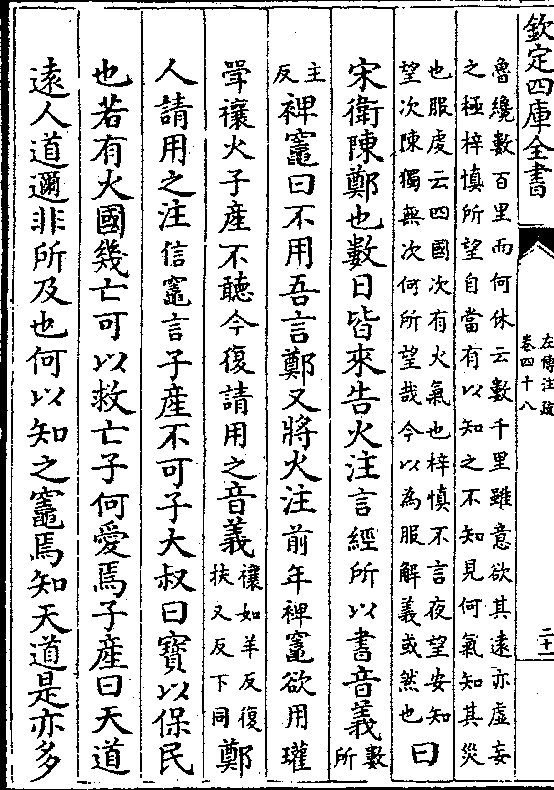 欽定四庫全書
左傳注疏
卷四十八
二十
魯纔數百里而何休云數千里雖意欲其遠亦虛妄
之極梓慎所望自當有以知之不知見何氣知其災
也服虔云四國次有火氣也梓慎不言夜望安知
望次陳獨無次何所望哉今以為服解義或然也
曰
宋衛陳鄭也數日皆來告火注言經所以書音義
數
所
主
反
裨竈曰不用吾言鄭又將火注前年裨竈欲用瓘
斝禳火子產不聽今復請用之音義
禳如羊反復
扶又反下同
鄭
人請用之注信竈言子產不可子大叔曰寶以保民
也若有火國幾亡可以救亡子何愛焉子產曰天道
遠人道邇非所及也何以知之竈焉知天道是亦多